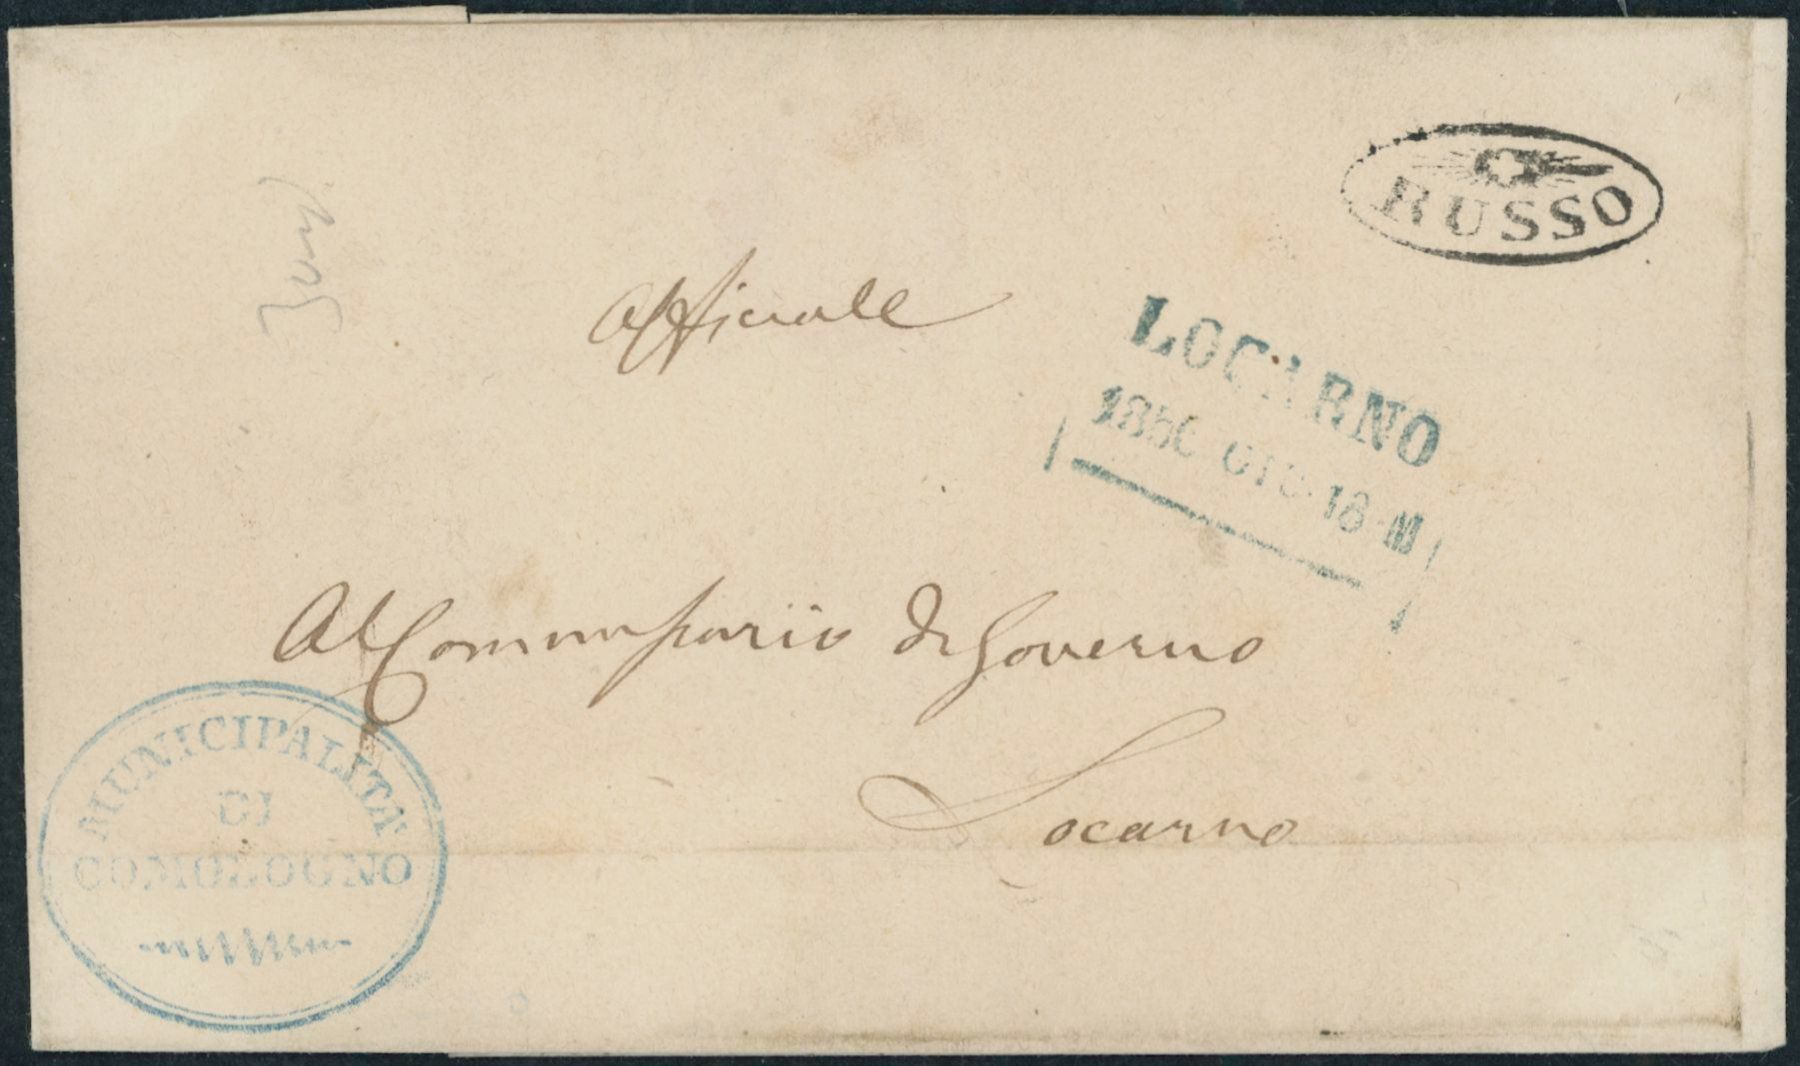 RUSSO
Officiale
LOCARNO
1850 GIU 18 M
Al Commissario di Governo
Locarno
MUNICIPALITA'
DI
COMOLOGNO